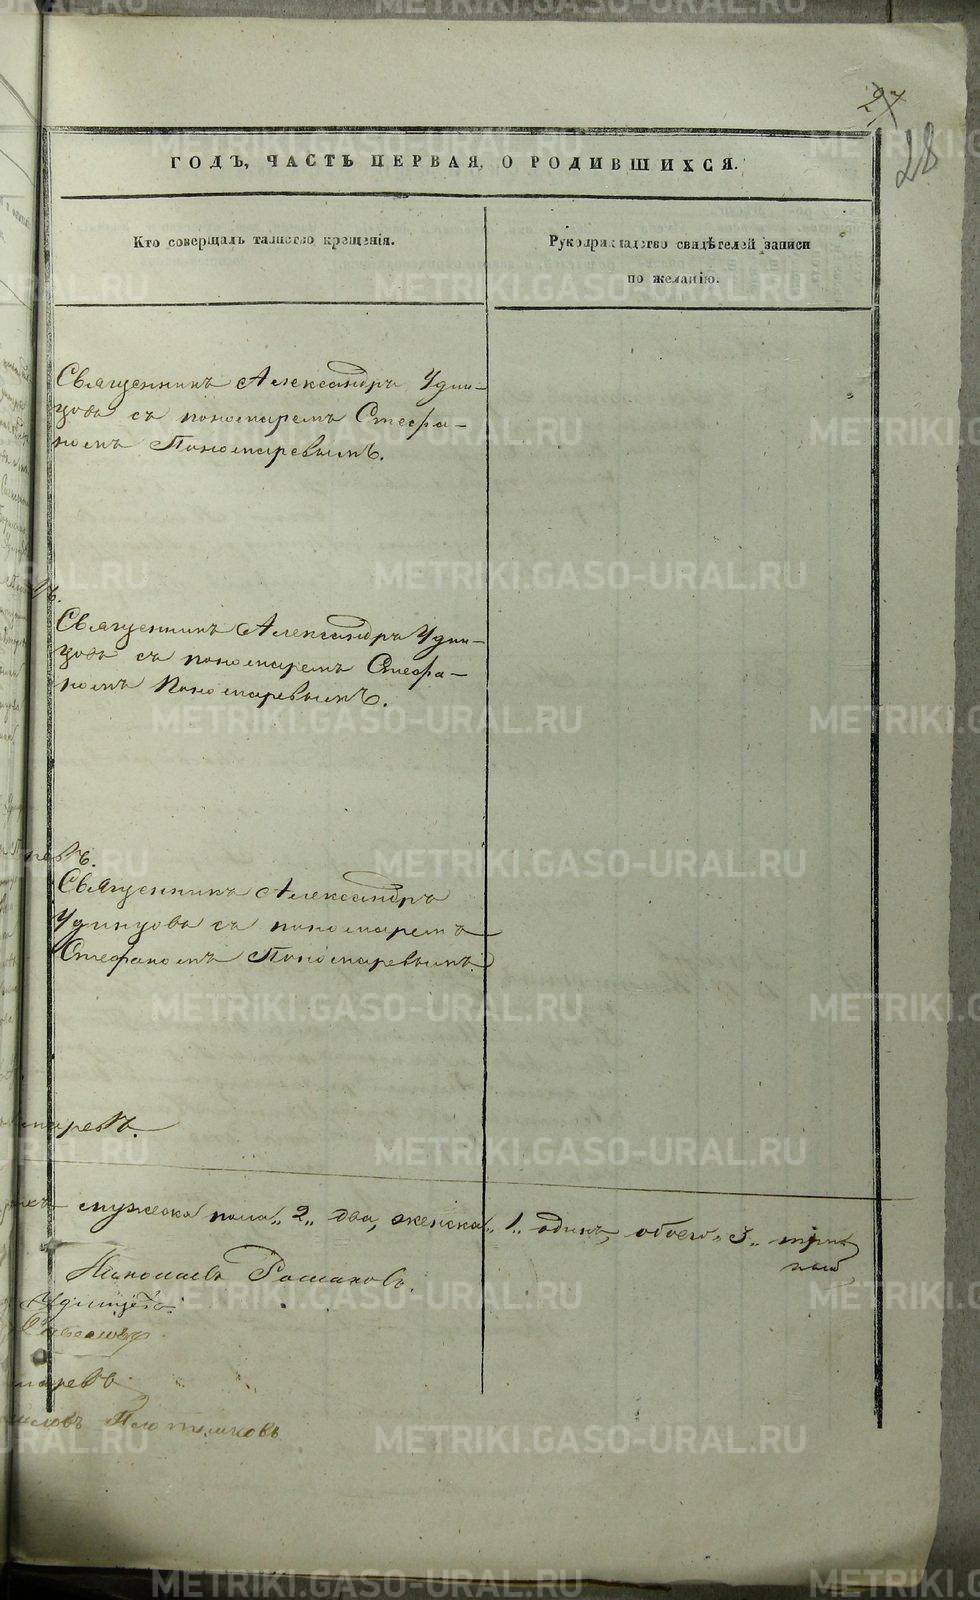 27
28
ГОДЪ, ЧАСТЬ ПЕРВАЯ, О РОДИВШИХСЯ.
Кто совершалъ таинство крещенія.
Рукоприкладство свидѣтелей записи
по желанію.
Священникъ Александръ Удин-
цовъ съ пономаремъ Стефа-
номъ Пономаревымъ.
Священникъ Александръ Удин-
цовъ съ пономаремъ Стефа-
номъ Пономаревымъ.
Священникъ Александръ
Удинцовъ съ пономаремъ
Стефаномъ Пономаревымъ.
мужска пола „2„ два, женска „1„ одинъ, обоего „3„
Николаевъ Романовъ.
Удинцевъ
Плотниковъ
METRIKI.GASO-URAL.RU